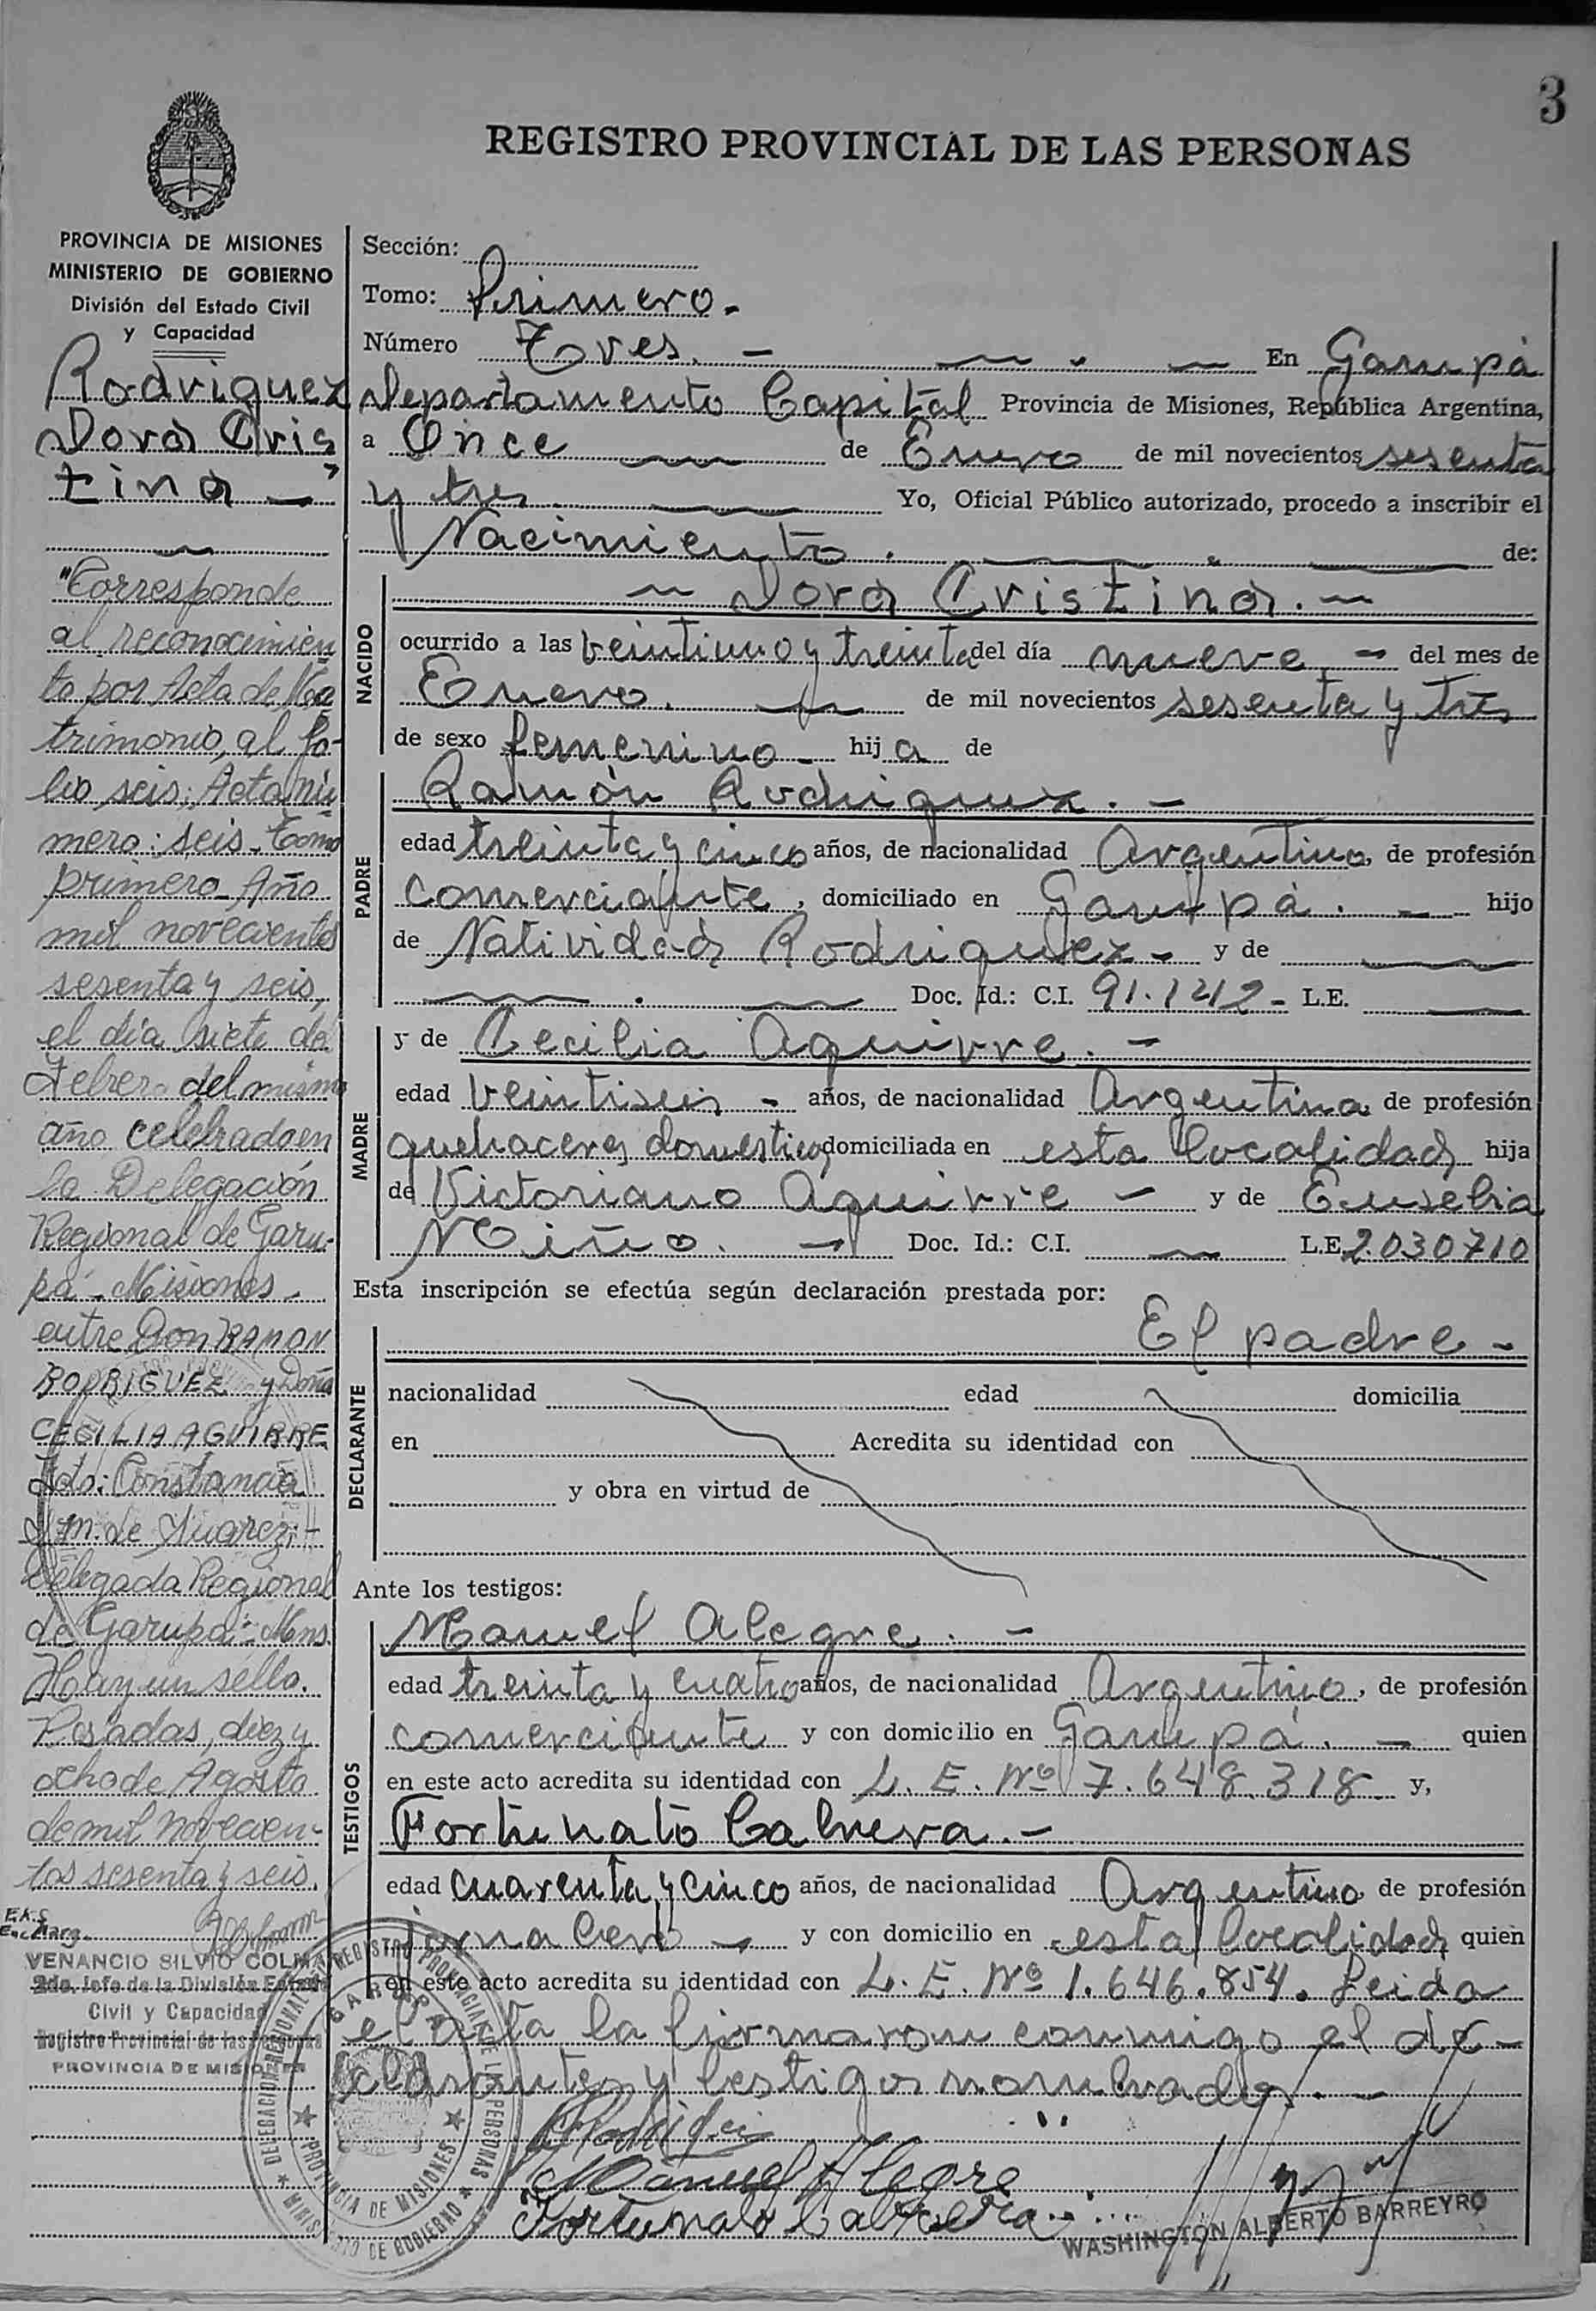 3
REGISTRO PROVINCIAL DE LAS PERSONAS
PROVINCIA DE MISIONES
MINISTERIO DE GOBIERNO
División del Estado Civil
y Capacidad
Rodriguez
Dora Cris
tina -
"Corresponde
al reconocimien
to por Acta de Ma
trimonio, al fo-
lio seis; Acta nú
mero: seis. Tomo
primero. Año
mil novecientos
sesenta y seis,
el día siete de
Febrero del mismo
año celebrado en
la Delegación
Regional de Garu-
pá - Misiones -
entre Don RAMON
RODRIGUEZ y Doña
CECILIA AGUIRRE
Fdo: Constancia
M. de Suarez; -
Delegada Regional
de Garupá - Mns.
Hay un sello.
Posadas, diez y
ocho de Agosto
de mil novecien-
tos sesenta y seis.
E.K.S.
Enc. Marg.
VENANCIO SILVIO COLM
2do. Jefe de la División Estado
Civil y Capacidad
Registro Provincial de las Personas
PROVINCIA DE MISIONES
Sección:
Tomo: Primero. -
Número Tres. - En Garupá
Departamento Capital Provincia de Misiones, República Argentina,
a Once de Enero de mil novecientos sesenta
y tres Yo, Oficial Público autorizado, procedo a inscribir el
Nacimiento. de:
NACIDO
Dora Cristina. -
ocurrido a las veintiuno y treinta del día nueve. - del mes de
Enero. de mil novecientos sesenta y tres
de sexo femenino - hija de
PADRE
Ramón Rodriguez. -
edad treinta y cinco años, de nacionalidad Argentino, de profesión
comerciante, domiciliado en Garupá. - hijo
de Natividad Rodriguez - y de
Doc. Id.: C.I. 91.1242 - L.E.
MADRE
y de Cecilia Aguirre. -
edad veintiseis - años, de nacionalidad Argentina de profesión
quehaceres domesticos domiciliada en esta localidad hija
de Victoriano Aguirre - y de Eusebia
Miño. - Doc. Id.: C.I. L.E. 2.030710
Esta inscripción se efectúa según declaración prestada por:
El padre -
DECLARANTE
nacionalidad edad domicilia
en Acredita su identidad con
y obra en virtud de
Ante los testigos:
TESTIGOS
Manuel Alegre. -
edad treinta y cuatro años, de nacionalidad Argentino, de profesión
comerciante y con domicilio en Garupá. - quien
en este acto acredita su identidad con L. E. Nº 7.648.318 y,
Fortunato Cabrera. -
edad cuarenta y cinco años, de nacionalidad Argentino de profesión
jornalero - y con domicilio en esta localidad quien
en este acto acredita su identidad con L. E. Nº 1.646.854. Leida
el acta la firmaron conmigo el de-
clarante y testigos nombrados. -
Manuel Alegre
Fortunato Cabrera
WASHINGTON ALBERTO BARREYRO
DELEGACION REGIONAL REGISTRO PROVINCIAL DE LAS PERSONAS
GARUPA
PROVINCIA DE MISIONES
MINISTERIO DE GOBIERNO